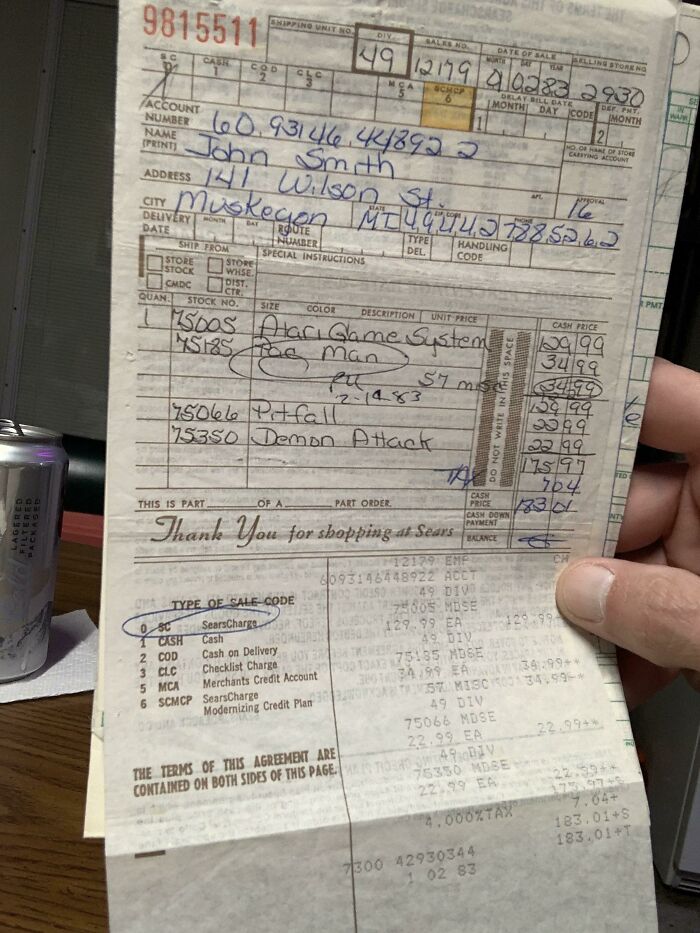 9815511
SHIPPING UNIT NO. DIV. SALES NO. DATE OF SALE SELLING STORE NO.
49 12179 MONTH DAY YEAR 2930
010283
SC 0 CASH 1 COD 2 CLC 3 MCA 5 SCMCP 6 DELAY BILL DATE MONTH DAY CODE DEF. PMT. MONTH
1 2
ACCOUNT NUMBER 60.93146.44892 2
NAME (PRINT) John Smith NO. OR NAME OF STORE CARRYING ACCOUNT
ADDRESS 141 Wilson St. APT. APPROVAL 16
CITY Muskegon STATE MI ZIP CODE 49442 PHONE 7885262
DELIVERY DATE MONTH DAY ROUTE NUMBER TYPE DEL. HANDLING CODE
SHIP FROM SPECIAL INSTRUCTIONS
STORE STOCK STORE WHSE.
CMDC DIST. CTR.
QUAN. STOCK NO. SIZE COLOR DESCRIPTION UNIT PRICE CASH PRICE
1 75005 Atari Game System 129 99
75185 Pac Man 34 99
57 misc 34 99
2-14-83 129 99
75066 Pitfall 22 99
75350 Demon Attack 22 99
175 97
7 04
DO NOT WRITE IN THIS SPACE
THIS IS PART OF A PART ORDER. CASH PRICE 183 01
Thank You for shopping at Sears CASH DOWN PAYMENT
BALANCE
12179 EMP CH
6093146448922 ACCT
49 DIV
75005 MDSE
129.99 EA 129.99
49 DIV
75185 MDSE
34.99 EA 34.99+*
57 MISC 34.99-*
49 DIV
75066 MDSE
22.99 EA 22.99+*
49 DIV
75350 MDSE
22.99 EA 22.99+*
175.97+S
4.000%TAX 7.04+
183.01+S
183.01+T
7300 42930344
1 02 83
TYPE OF SALE CODE
0 SC SearsCharge
1 CASH Cash
2 COD Cash on Delivery
3 CLC Checklist Charge
5 MCA Merchants Credit Account
6 SCMCP SearsCharge Modernizing Credit Plan
THE TERMS OF THIS AGREEMENT ARE
CONTAINED ON BOTH SIDES OF THIS PAGE.
LAGERED
FILTERED
PACKAGED